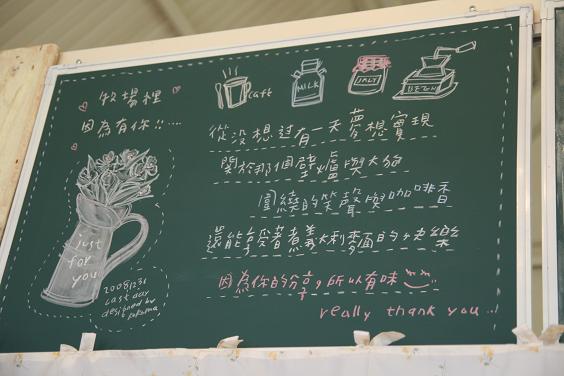 牧場裡
因為有你!!....
cafe
MILK
SALT
從沒想過有一天夢想實現
關於那個壁爐與大狗
圍繞的笑聲與咖啡香
還能享受著煮義大利麵的快樂
因為你的分享,所以有味
really thank you..!
just
for
you
20081231
Last day
designed by